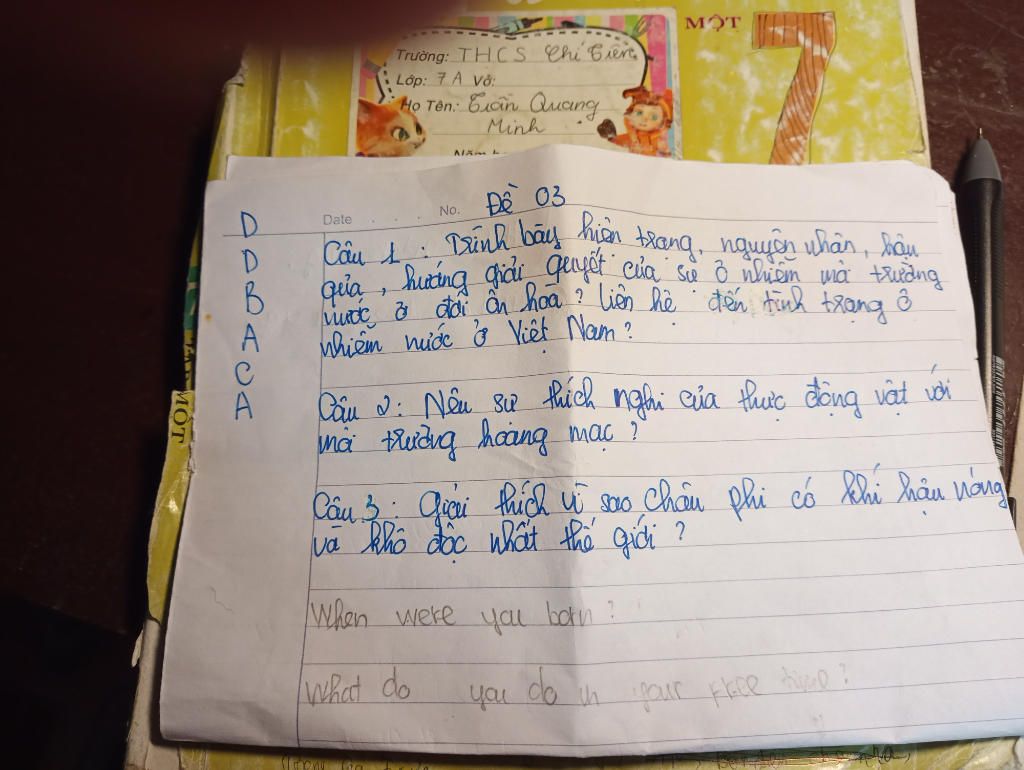 MỘT
7
Trường: THCS Chí Tiên
Lớp: 7A Vở:
Họ Tên: Trần Quang
Minh
Date . . . . No.
Đề 03
D
D
B
A
C
A
Câu 1 : Trình bày hiện trạng, nguyên nhân, hậu
qủa, hướng giải quyết của sự ô nhiễm mà trường
nước ở đới ôn hoà ? Liên hệ đến tình trạng ô
nhiễm nước ở Việt Nam ?
Câu 2 : Nêu sự thích nghi của thực động vật với
mà trường hoang mạc ?
Câu 3 : Giải thích vì sao châu phi có khí hậu nóng
và khô độc nhất thế giới ?
When were you born ?
What do you do in your free time ?
MỘT